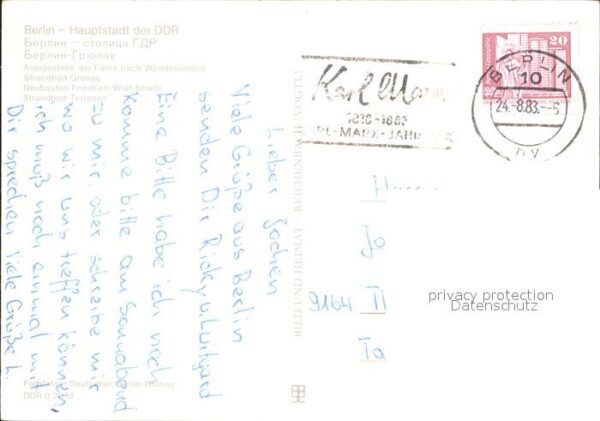 Berlin – Hauptstadt der DDR
Берлин – столица ГДР
Берлин-Грюнау
Anlegestelle der Fähre nach Wendenschloß
Strandbad Grünau
Neubauten Friedrich-Wolf-Straße
Strandbad-Terrasse
Lieber Jochen
Viele Grüße aus Berlin
senden Dir Ricky u. Luitgard
Eine Bitte habe ich noch
Komme bitte am Sonnabend
zu mir, oder schreibe mir
wo wir uns treffen können,
ich muß noch einmal mit
Dir sprechen Viele Grüße L.
Karl Marx
1818-1883
KARL-MARX-JAHR
20
BERLIN
10
24.-8.83.
BILD UND HEIMAT · REICHENBACH (VOGTL)
Jo
9164
Ta
privacy protection
Datenschutz
Berlin-Grünau
DDR 0,20 M